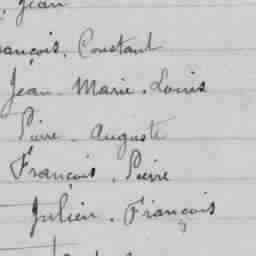 , Jean
ançois, Constant
Jean - Marie - Louis
Pierre - Auguste
François - Pierre
Julien - François